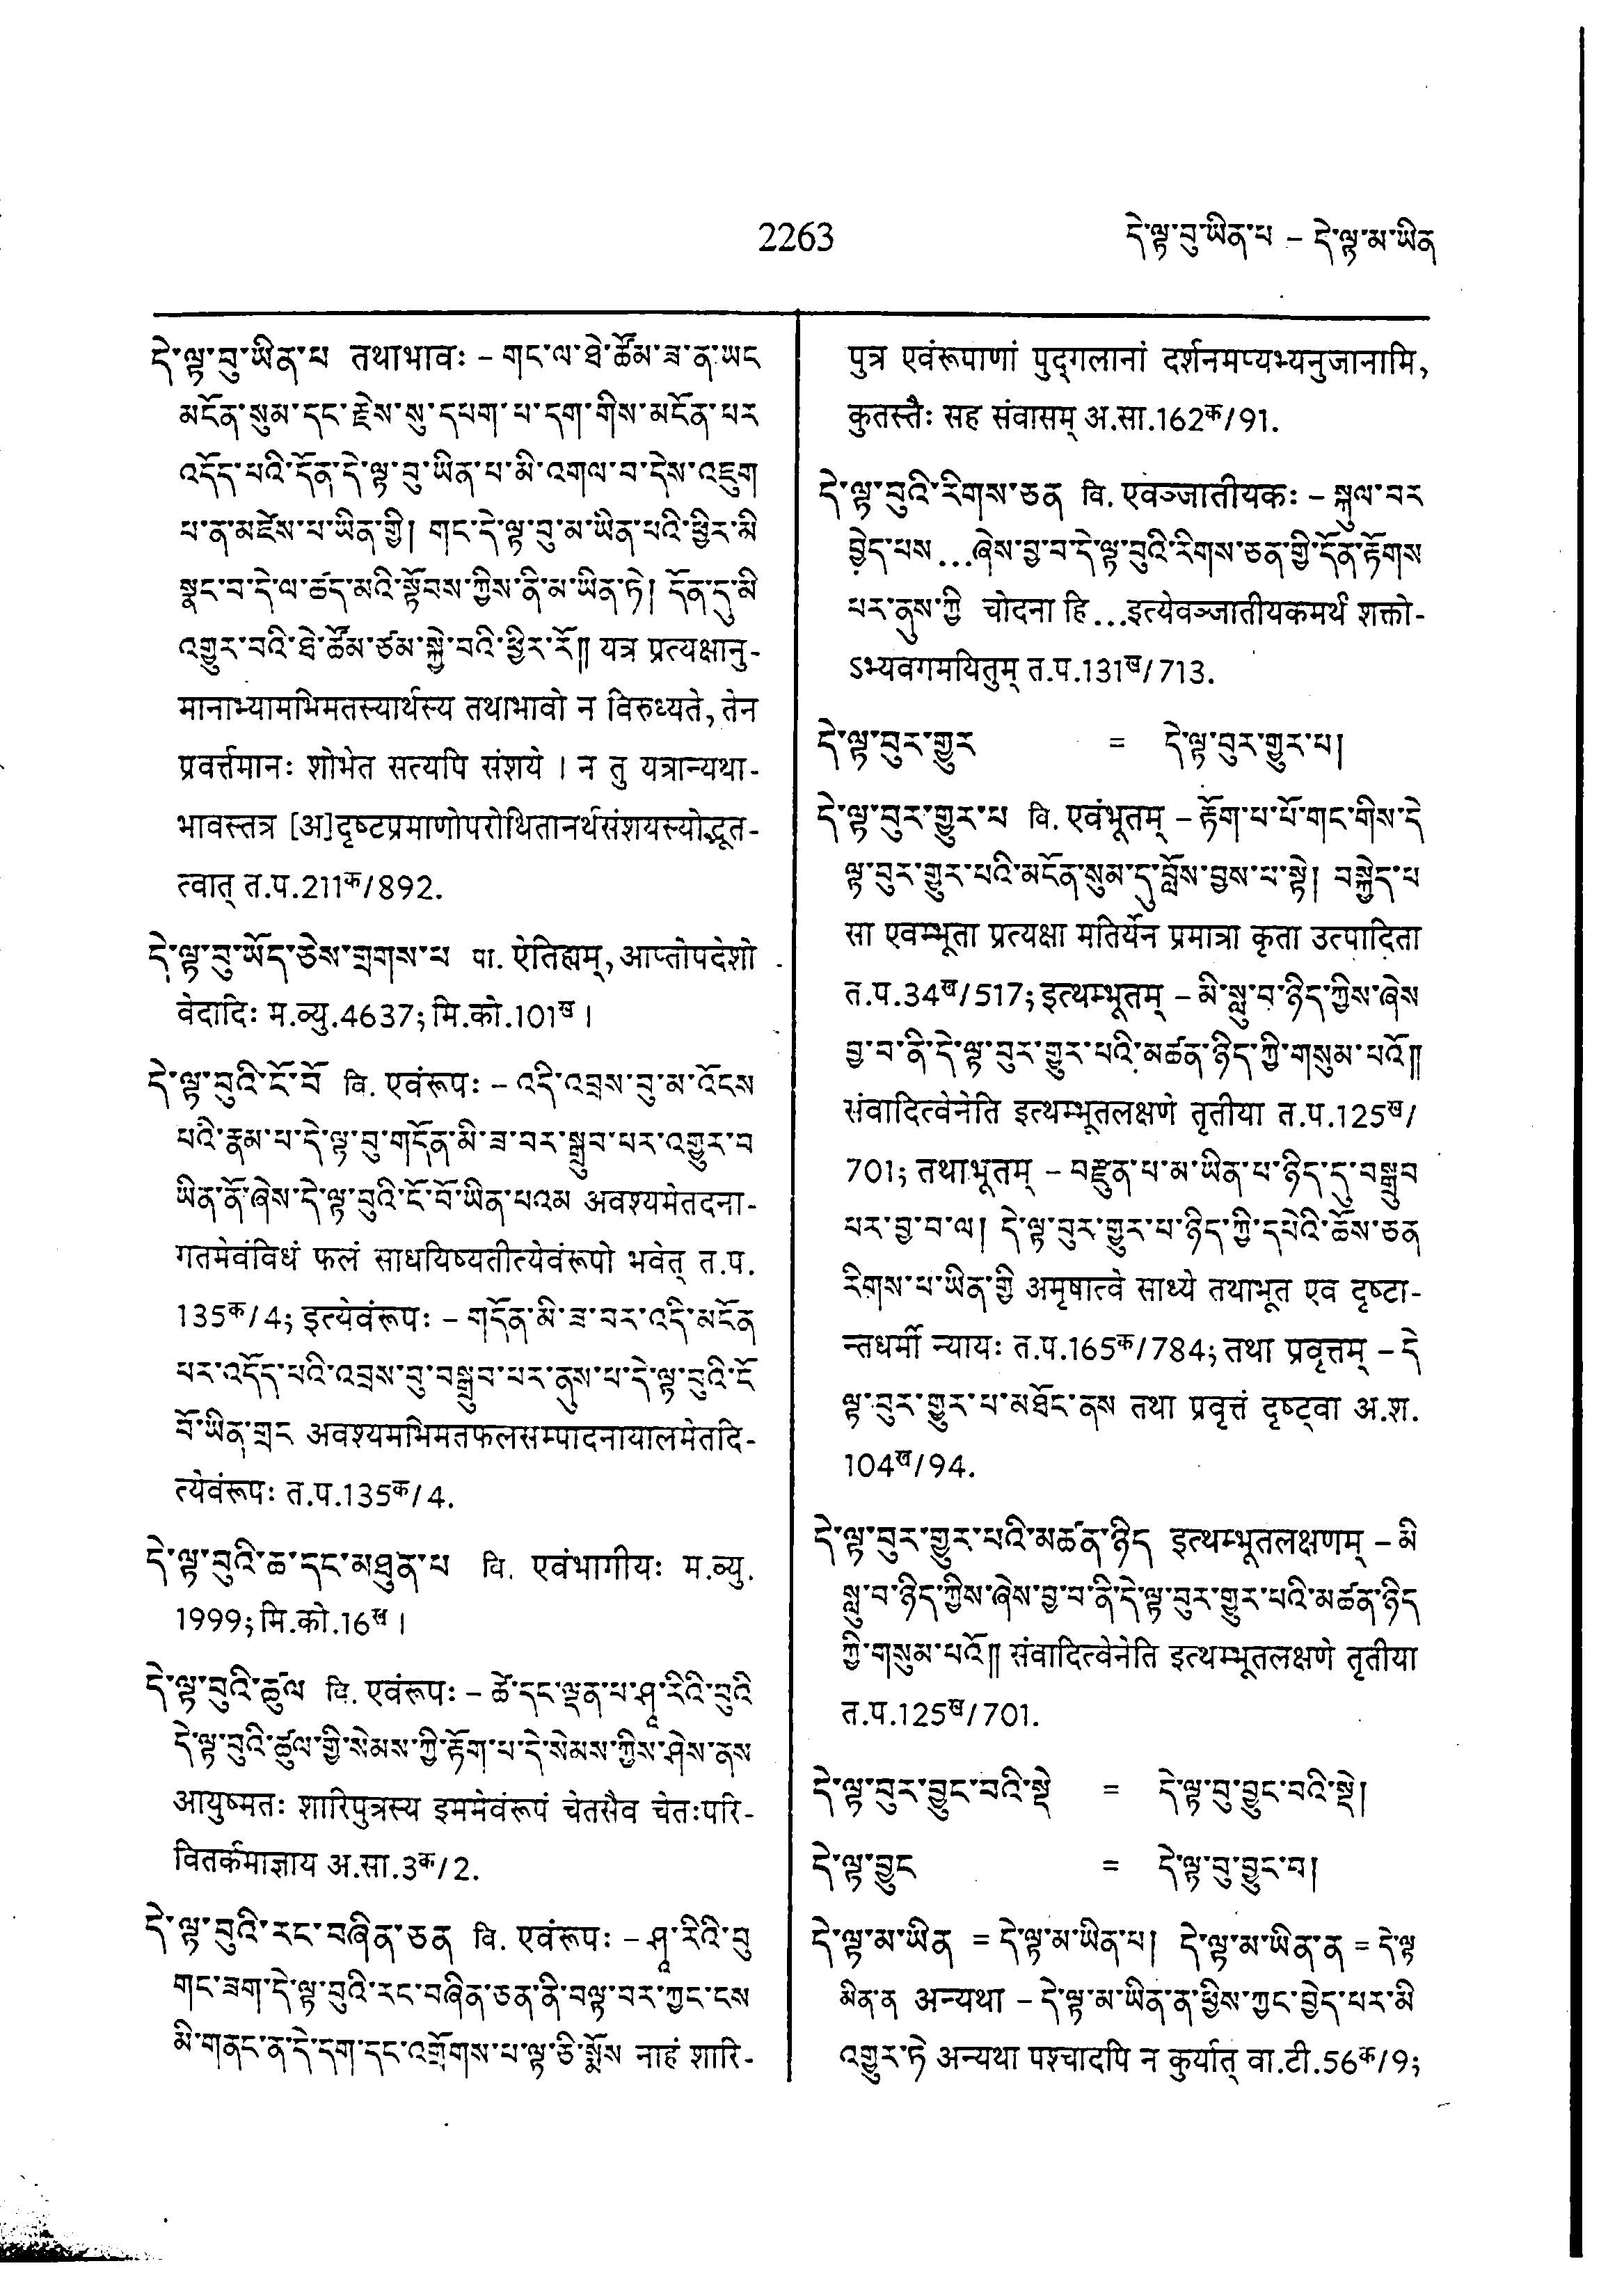 2263
དེ་ལྟ་བུ་ཡིན་པ – དེ་ལྟ་མ་ཡིན
དེ་ལྟ་བུ་ཡིན་པ तथाभावः – གང་ལ་ཐེ་ཚོམ་ཟ་ན་ཡང
མངོན་སུམ་དང་རྗེས་སུ་དཔག་པ་དག་གིས་མངོན་པར
འདོད་པའི་དོན་དེ་ལྟ་བུ་ཡིན་པ་མི་འགལ་བ་དེས་འཇུག
པ་ན་མཛེས་པ་ཡིན་གྱི། གང་དེ་ལྟ་བུ་མ་ཡིན་པའི་ཕྱིར་མི
སྣང་བ་དེ་ལ་ཚད་མའི་སྟོབས་ཀྱིས་ནི་མ་ཡིན་ཏེ། དོན་དུ་མི
འགྱུར་བའི་ཐེ་ཚོམ་ཙམ་སྐྱེ་བའི་ཕྱིར་རོ༎ यत्र प्रत्यक्षानु-
मानाभ्यामभिमतस्यार्थस्य तथाभावो न विरुध्यते, तेन
प्रवर्त्तमानः शोभेत सत्यपि संशये । न तु यत्रान्यथा-
भावस्तत्र [अ]दृष्टप्रमाणोपरोधितानर्थसंशयस्योद्भूत-
त्वात् त.प.211क/892.
དེ་ལྟ་བུ་ཡོད་ཅེས་གྲགས་པ पा. ऐतिह्यम्, आप्तोपदेशो
वेदादिः म.व्यु.4637; मि.को.101ख ।
དེ་ལྟ་བུའི་ངོ་བོ वि. एवंरूपः – འདི་འབྲས་བུ་མ་འོངས
པའི་རྣམ་པ་དེ་ལྟ་བུ་གདོན་མི་ཟ་བར་སྒྲུབ་པར་འགྱུར་བ
ཡིན་ནོ་ཞེས་དེ་ལྟ་བུའི་ངོ་བོ་ཡིན་པའམ अवश्यमेतदना-
गतमेवंविधं फलं साधयिष्यतीत्येवंरूपो भवेत् त.प.
135क/4; इत्येवंरूपः – གདོན་མི་ཟ་བར་འདི་མངོན
པར་འདོད་པའི་འབྲས་བུ་བསྒྲུབ་པར་ནུས་པ་དེ་ལྟ་བུའི་ངོ
བོ་ཡིན་གྲང अवश्यमभिमतफलसम्पादनायालमेतदि-
त्येवंरूपः त.प.135क/4.
དེ་ལྟ་བུའི་ཆ་དང་མཐུན་པ वि. एवंभागीयः म.व्यु.
1999; मि.को.16ख ।
དེ་ལྟ་བུའི་ཚུལ वि. एवंरूपः – ཚེ་དང་ལྡན་པ་ཤཱ་རིའི་བུའི
དེ་ལྟ་བུའི་ཚུལ་གྱི་སེམས་ཀྱི་རྟོག་པ་དེ་སེམས་ཀྱིས་ཤེས་ནས
आयुष्मतः शारिपुत्रस्य इममेवंरूपं चेतसैव चेतःपरि-
वितर्कमाज्ञाय अ.सा.3क/2.
དེ་ལྟ་བུའི་རང་བཞིན་ཅན वि. एवंरूपः – ཤཱ་རིའི་བུ
གང་ཟག་དེ་ལྟ་བུའི་རང་བཞིན་ཅན་ནི་བལྟ་བར་ཀྱང་ངས
མི་གནང་ན་དེ་དག་དང་འགྲོགས་པ་ལྟ་ཅི་སྨོས नाहं शारि-
पुत्र एवंरूपाणां पुद्गलानां दर्शनमप्यभ्यनुजानामि,
कुतस्तैः सह संवासम् अ.सा.162क/91.
དེ་ལྟ་བུའི་རིགས་ཅན वि. एवञ्जातीयकः – སྐུལ་བར
བྱེད་པས...ཞེས་བྱ་བ་དེ་ལྟ་བུའི་རིགས་ཅན་གྱི་དོན་རྟོགས
པར་ནུས་ཀྱི चोदना हि...इत्येवञ्जातीयकमर्थं शक्तो-
ऽभ्यवगमयितुम् त.प.131ख/713.
དེ་ལྟ་བུར་གྱུར = དེ་ལྟ་བུར་གྱུར་པ།
དེ་ལྟ་བུར་གྱུར་པ वि. एवंभूतम् – རྟོག་པ་པོ་གང་གིས་དེ
ལྟ་བུར་གྱུར་པའི་མངོན་སུམ་དུ་བློས་བྱས་པ་སྟེ། བསྐྱེད་པ
सा एवम्भूता प्रत्यक्षा मतिर्येन प्रमात्रा कृता उत्पादिता
त.प.34ख/517; इत्थम्भूतम् – མི་སླུ་བ་ཉིད་ཀྱིས་ཞེས
བྱ་བ་ནི་དེ་ལྟ་བུར་གྱུར་པའི་མཚན་ཉིད་ཀྱི་གསུམ་པའོ༎
संवादित्वेनेति इत्थम्भूतलक्षणे तृतीया त.प.125ख/
701; तथाभूतम् – བརྫུན་པ་མ་ཡིན་པ་ཉིད་དུ་བསྒྲུབ
པར་བྱ་བ་ལ། དེ་ལྟ་བུར་གྱུར་པ་ཉིད་ཀྱི་དཔེའི་ཆོས་ཅན
རིགས་པ་ཡིན་གྱི अमृषात्वे साध्ये तथाभूत एव दृष्टा-
न्तधर्मी न्यायः त.प.165क/784; तथा प्रवृत्तम् – དེ
ལྟ་བུར་གྱུར་པ་མཐོང་ནས तथा प्रवृत्तं दृष्ट्वा अ.श.
104ख/94.
དེ་ལྟ་བུར་གྱུར་པའི་མཚན་ཉིད इत्थम्भूतलक्षणम् – མི
སླུ་བ་ཉིད་ཀྱིས་ཞེས་བྱ་བ་ནི་དེ་ལྟ་བུར་གྱུར་པའི་མཚན་ཉིད
ཀྱི་གསུམ་པའོ༎ संवादित्वेनेति इत्थम्भूतलक्षणे तृतीया
त.प.125ख/701.
དེ་ལྟ་བུར་བྱུང་བའི་སྡེ = དེ་ལྟ་བུ་བྱུང་བའི་སྡེ།
དེ་ལྟ་བྱུང = དེ་ལྟ་བུ་བྱུང་བ།
དེ་ལྟ་མ་ཡིན = དེ་ལྟ་མ་ཡིན་པ། དེ་ལྟ་མ་ཡིན་ན = དེ་ལྟ
མིན་ན अन्यथा – དེ་ལྟ་མ་ཡིན་ན་ཕྱིས་ཀྱང་བྱེད་པར་མི
འགྱུར་ཏེ अन्यथा पश्चादपि न कुर्यात् वा.टी.56क/9;